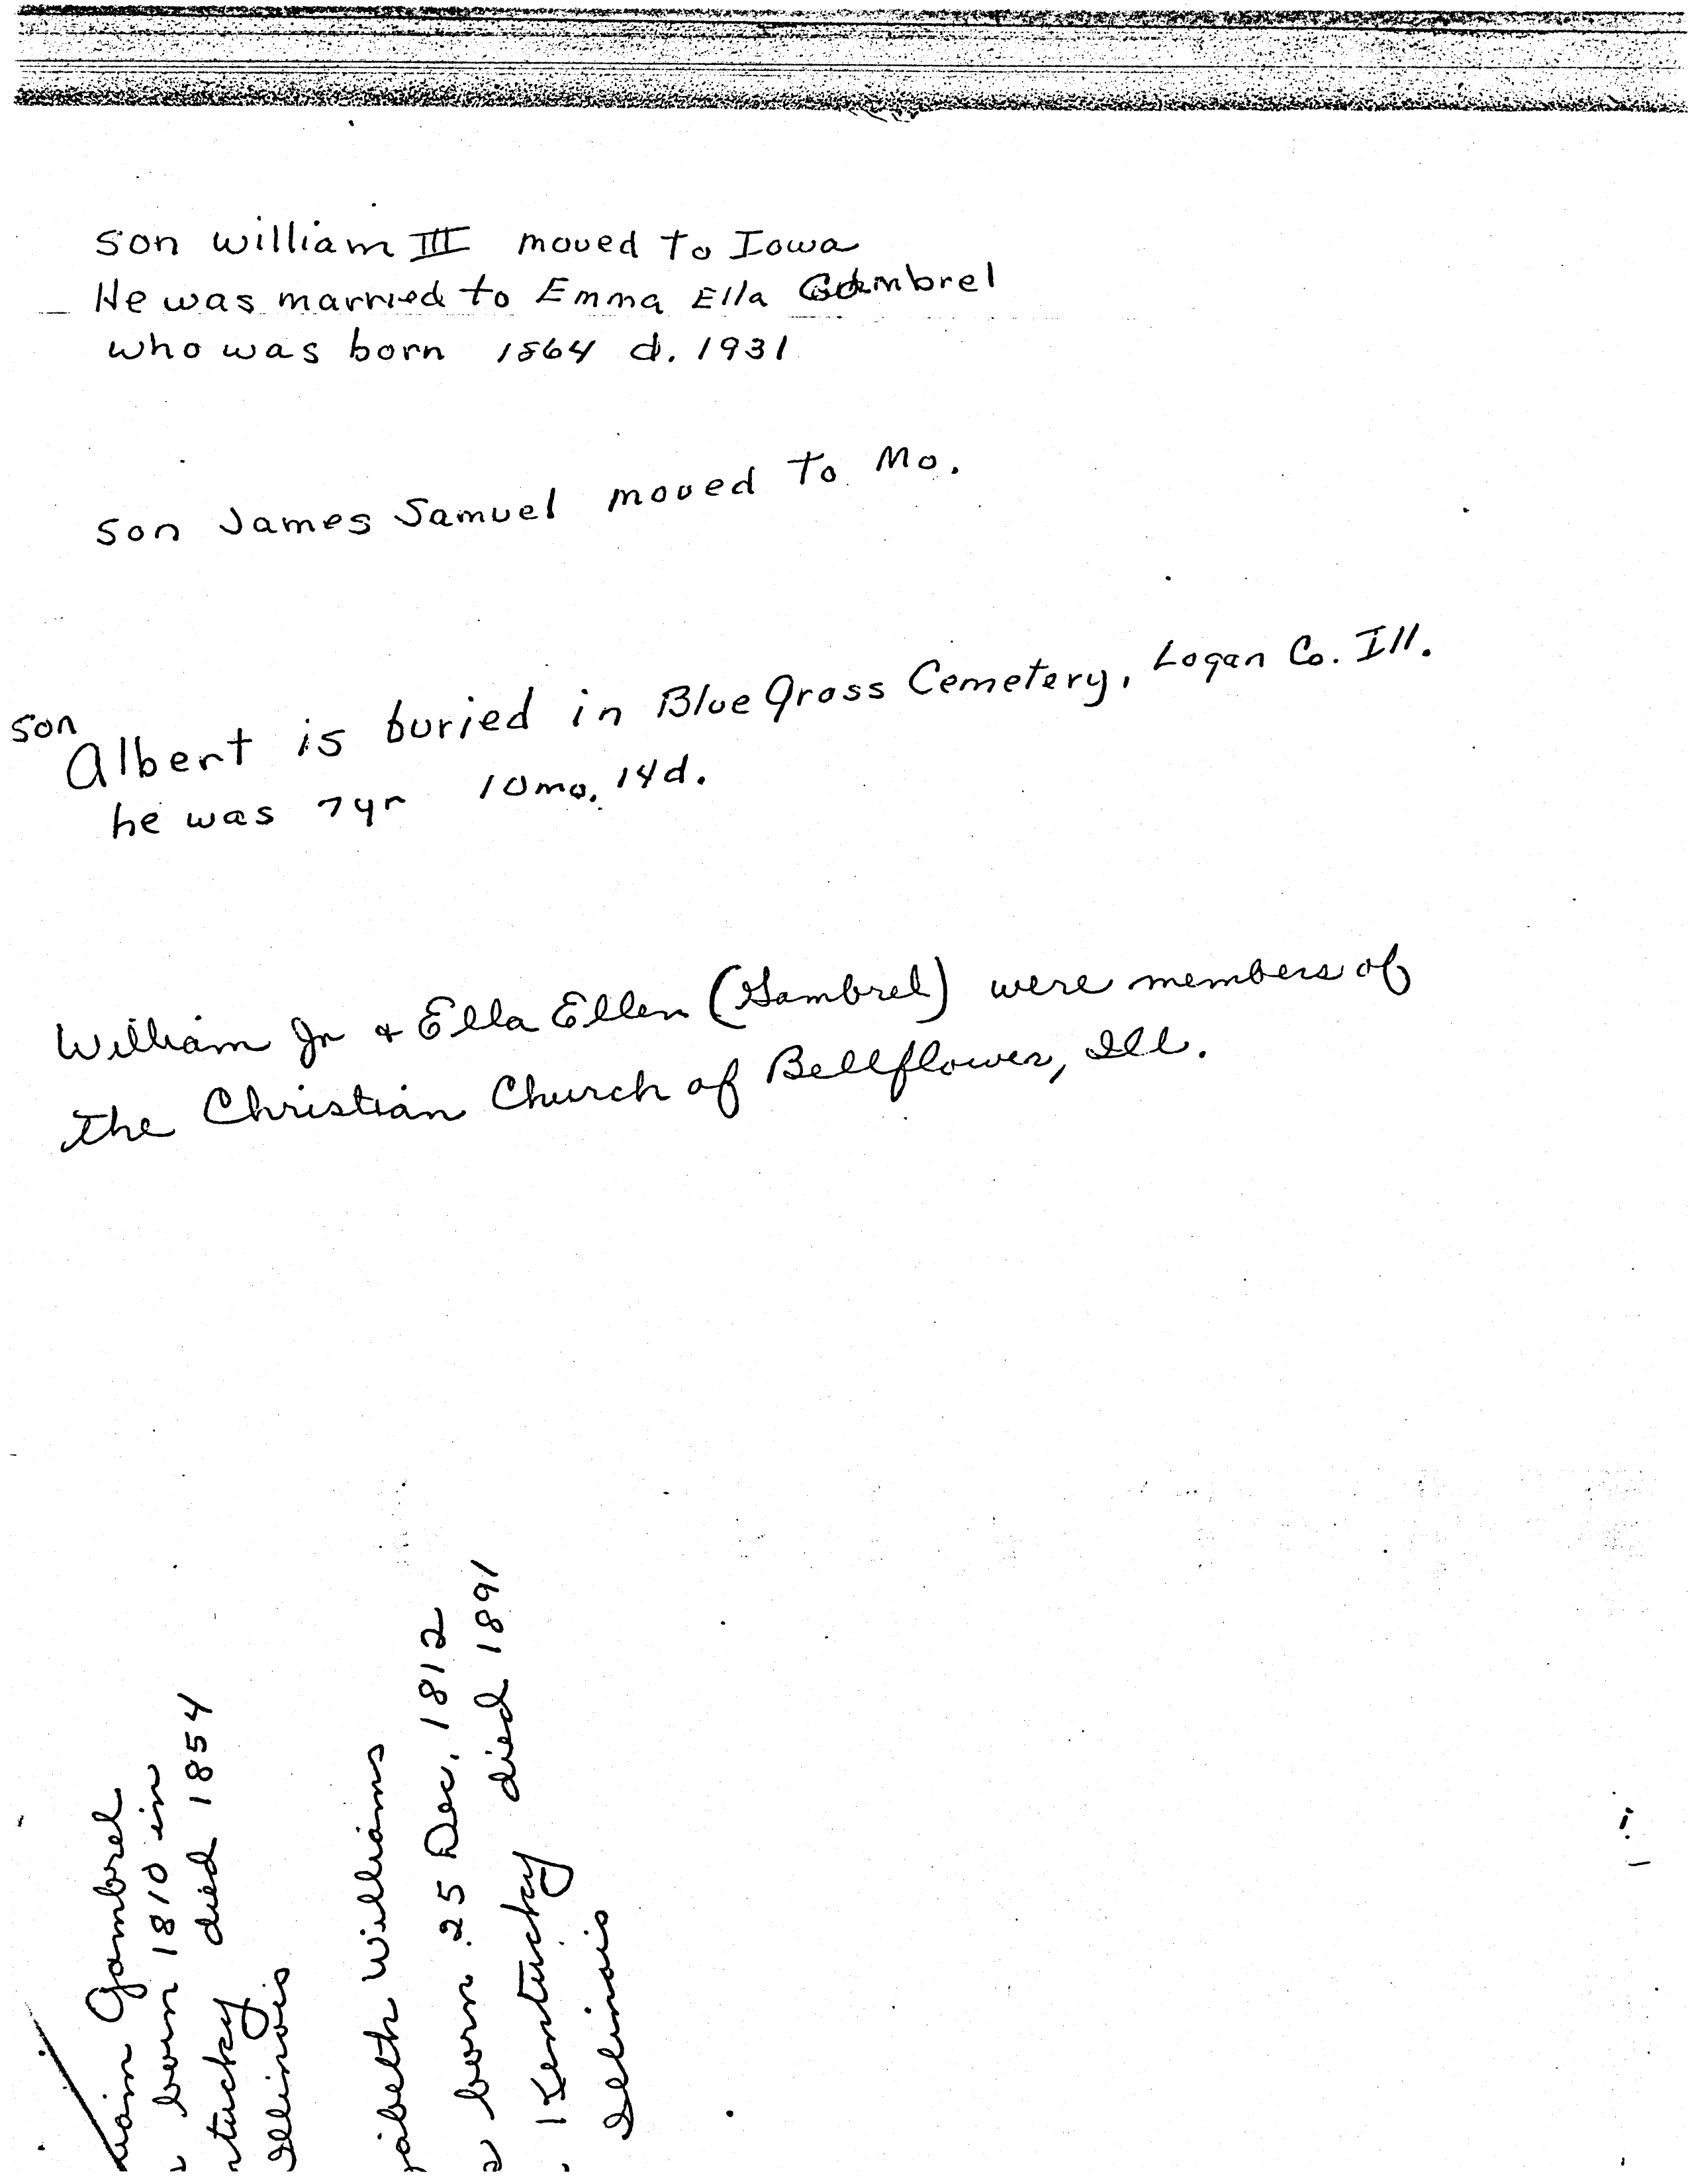 son william III moved to Iowa
He was married to Emma Ella Gambrel
who was born 1864 d. 1931
son James Samuel moved to Mo.
son
Albert is buried in Blue Grass Cemetery, Logan Co. Ill.
he was 7yr 10mo. 14d.
William Jr & Ella Ellen (Gambrel) were members of
the Christian Church of Bellflower, Ill.
liam Gambrel
born 1810 in
ntucky died 1854
Illinois
zabeth Williams
born 25 Dec. 1812
Kentucky died 1891
Illinois